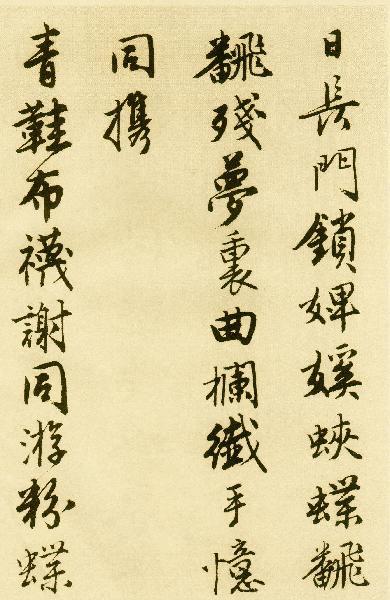 日長門鎖婢㜎蛺蝶飜
飜殘夢裏曲欄纖手憶
同携
青鞋布襪謝同游粉蝶